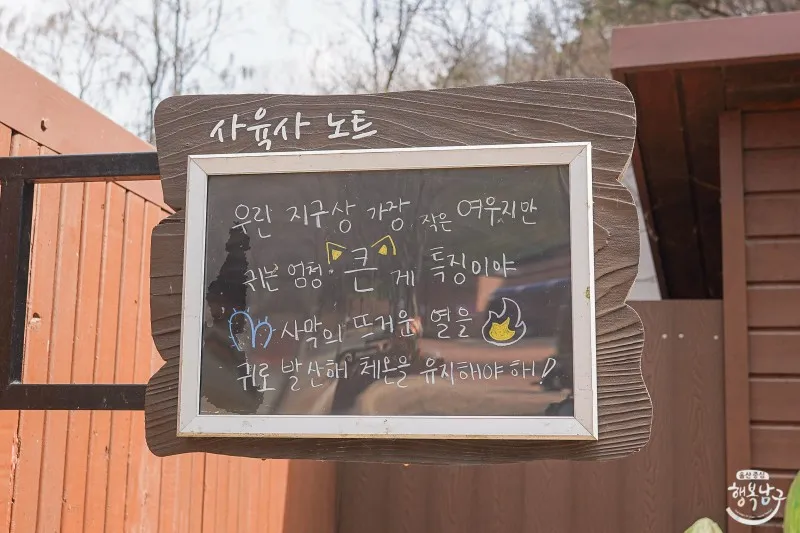 사육사 노트
우린 지구상 가장 작은 여우지만
귀는 엄청 큰 게 특징이야
사막의 뜨거운 열을
귀로 발산해 체온을 유지해야 해!
울산 중심
행복남구